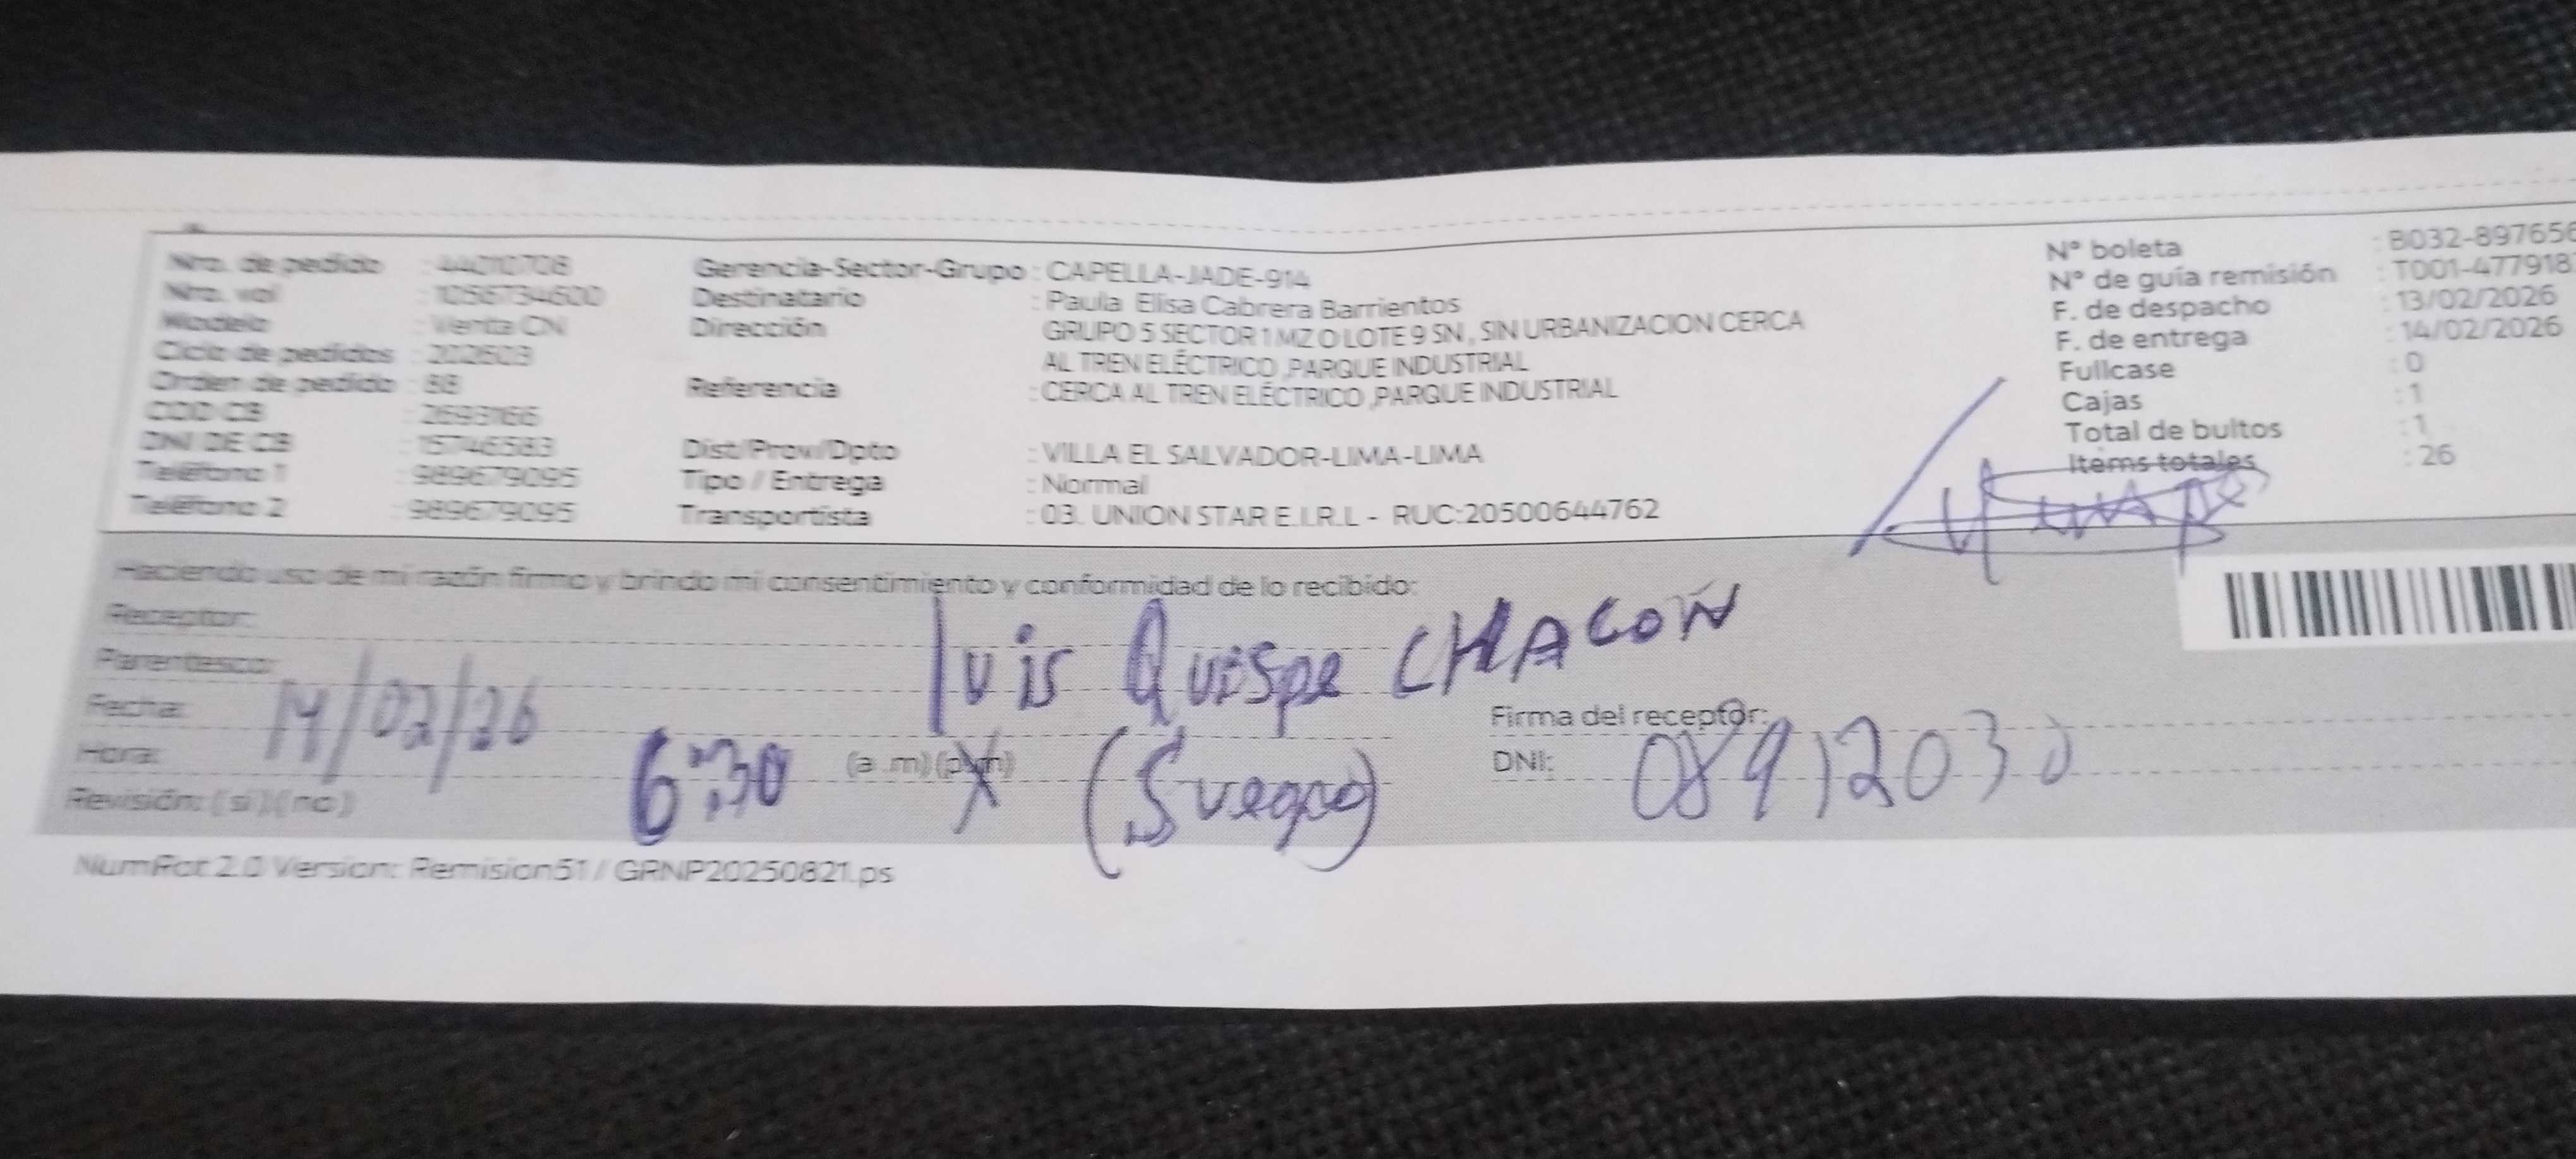 Nro. de pedido : 44010708
Nro. vol : 1056734600
Modelo : Venta CN
Ciclo de pedidos : 202603
Orden de pedido : 88
COD CB : 2693166
DNI DE CB : 15746583
Teléfono 1 : 989679095
Teléfono 2 : 989679095
Gerencia-Sector-Grupo : CAPELLA-JADE-914
Destinatario : Paula Elisa Cabrera Barrientos
Dirección GRUPO 5 SECTOR 1 MZ O LOTE 9 SN , SIN URBANIZACION CERCA
AL TREN ELÉCTRICO ,PARQUE INDUSTRIAL
Referencia : CERCA AL TREN ELÉCTRICO ,PARQUE INDUSTRIAL
Dist/Prov/Dpto : VILLA EL SALVADOR-LIMA-LIMA
Tipo / Entrega : Normal
Transportista : 03. UNION STAR E.I.R.L - RUC:20500644762
N° boleta : B032-897656
N° de guía remisión : T001-477918
F. de despacho : 13/02/2026
F. de entrega : 14/02/2026
Fullcase : 0
Cajas : 1
Total de bultos : 1
Items totales : 26
Haciendo uso de mi razón firmo y brindo mi consentimiento y conformidad de lo recibido:
Receptor:
luis Quispe CHACON
Parentesco:
(Suegro)
Fecha: 14/02/26
Hora: 6:30 (a .m) (p.m)
Revisión: ( si ) ( no )
Firma del receptor:
DNI: 08912030
NumRot 2.0 Version: Remision51 / GRNP20250821.ps